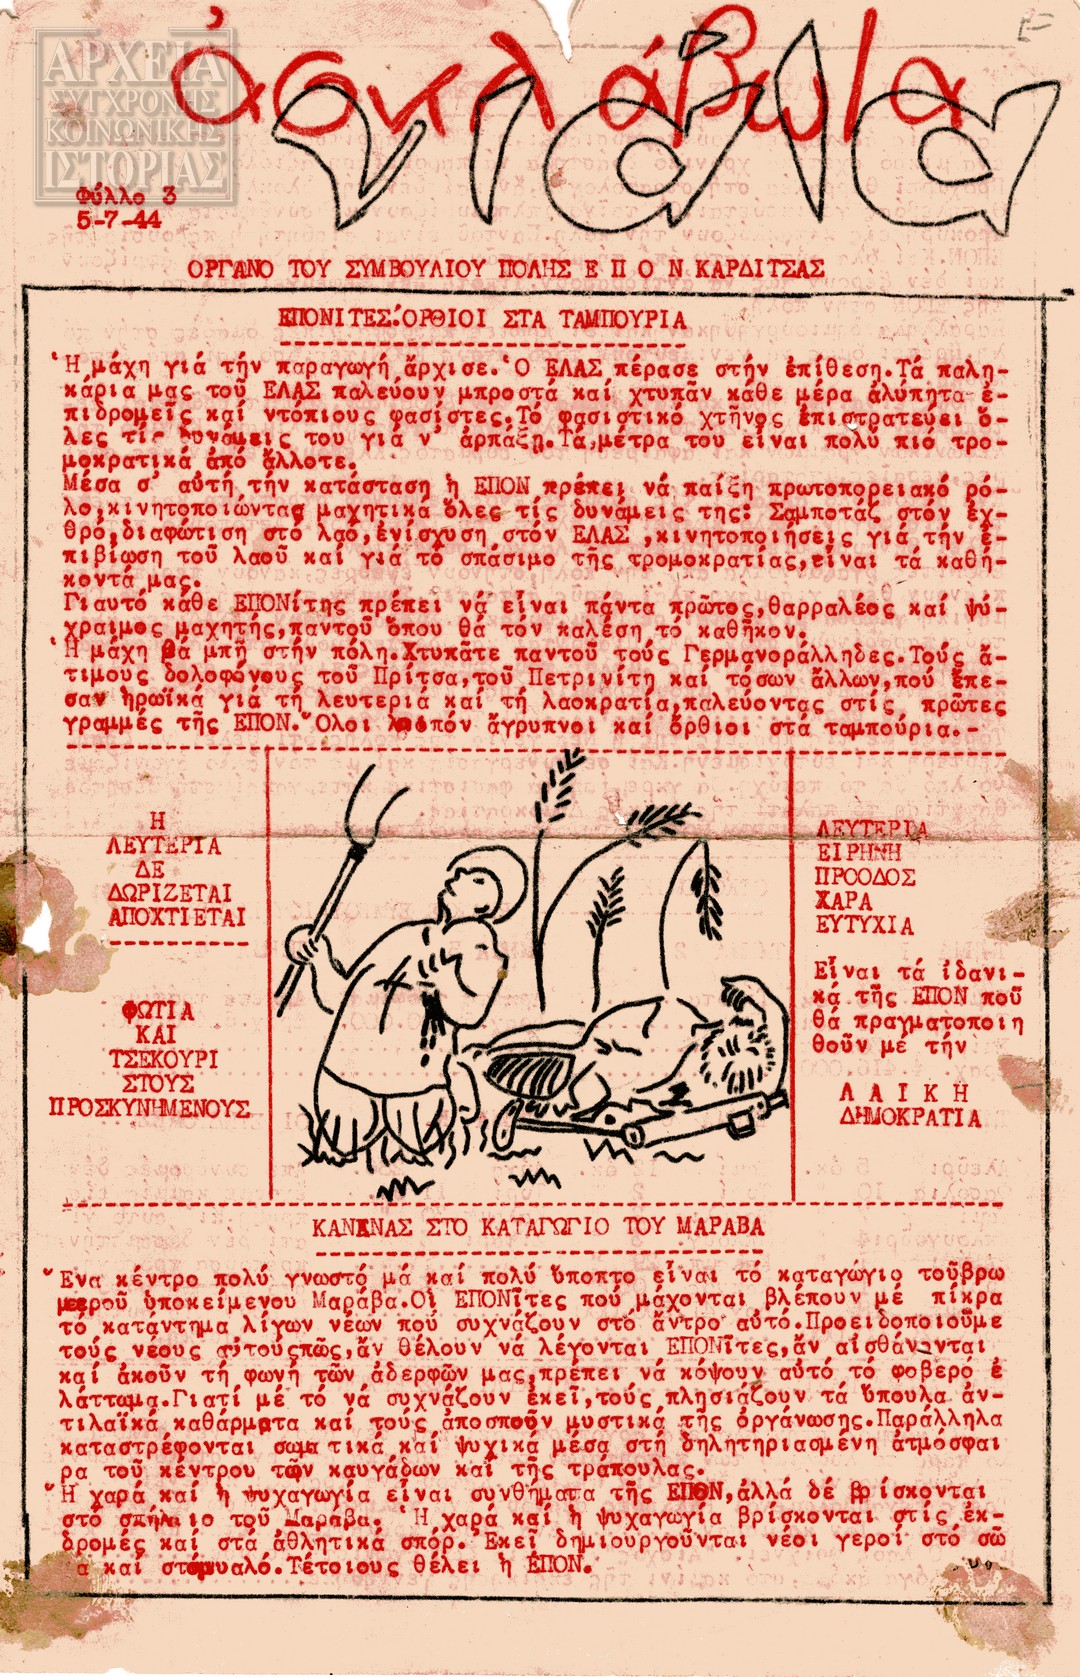 ΑΡΧΕΙΑ
ΣΥΓΧΡΟΝΗΣ
ΚΟΙΝΩΝΙΚΗΣ
ΙΣΤΟΡΙΑΣ
ἀσκλάβωλα
νιάτα
Φύλλο 3
5-7-44
ΟΡΓΑΝΟ ΤΟΥ ΣΥΜΒΟΥΛΙΟΥ ΠΟΛΗΣ Ε Π Ο Ν ΚΑΡΔΙΤΣΑΣ
ΕΠΟΝΙΤΕΣ:ΟΡΘΙΟΙ ΣΤΑ ΤΑΜΠΟΥΡΙΑ
Ἡ μάχη γιά τήν παραγωγή ἄρχισε.Ὁ ΕΛΑΣ πέρασε στήν ἐπίθεση.Τά παλη-
κάρια μας τοῦ ΕΛΑΣ παλεύουν μπροστά καί χτυπᾶν κάθε μέρα ἀλύπητα ἐ-
πιδρομεῖς καί ντόπιους φασίστες.Τό φασιστικό χτῆνος ἐπιστρατεύει ὅ-
λες τίς δυνάμεις του γιά ν' ἁρπάξη.Τά μέτρα του εἶναι πολύ πιό τρο-
μοκρατικά ἀπό ἄλλοτε.
Μέσα σ' αὐτή τήν κατάσταση ἡ ΕΠΟΝ πρέπει νά παίξη πρωτοπορειακό ρό-
λο,κινητοποιώντας μαχητικά ὅλες τίς δυνάμεις της: Σαμποτάζ στόν ἐχ-
θρό,διαφώτιση στό λαό,ἐνίσχυση στόν ΕΛΑΣ ,κινητοποιήσεις γιά τήν ἐ-
πιβίωση τοῦ λαοῦ καί γιά τό σπάσιμο τῆς τρομοκρατίας,εἶναι τά καθή-
κοντά μας.
Γιαυτό κάθε ΕΠΟΝίτης πρέπει νά εἶναι πάντα πρῶτος,θαρραλέος καί ψύ-
χραιμος μαχητής,παντοῦ ὅπου θά τόν καλέση τό καθῆκον.
Ἡ μάχη θά μπῆ στήν πόλη.Χτυπᾶτε παντοῦ τούς Γερμανοράλληδες.Τούς ἄ-
τιμους δολοφόνους τοῦ Πρίτσα,τοῦ Πετρινίτη καί τόσων ἄλλων,πού ἔπε-
σαν ἡρωϊκά γιά τή λευτεριά καί τή λαοκρατία,παλεύοντας στίς πρῶτες
γραμμές τῆς ΕΠΟΝ.Ὅλοι λοιπόν ἄγρυπνοι καί ὄρθιοι στά ταμπούρια.-
Η
ΛΕΥΤΕΡΙΑ
ΔΕ
ΔΩΡΙΖΕΤΑΙ
ΑΠΟΧΤΙΕΤΑΙ
ΦΩΤΙΑ
ΚΑΙ
ΤΣΕΚΟΥΡΙ
ΣΤΟΥΣ
ΠΡΟΣΚΥΝΗΜΕΝΟΥΣ
ΛΕΥΤΕΡΙΑ
ΕΙΡΗΝΗ
ΠΡΟΟΔΟΣ
ΧΑΡΑ
ΕΥΤΥΧΙΑ
Εἶναι τά ἰδανι-
κά τῆς ΕΠΟΝ πού
θά πραγματοποιη
θοῦν μέ τήν
Λ Α Ι Κ Η
ΔΗΜΟΚΡΑΤΙΑ
ΚΑΝΕΝΑΣ ΣΤΟ ΚΑΤΑΓΩΓΙΟ ΤΟΥ ΜΑΡΑΒΑ
Ἕνα κέντρο πολύ γνωστό μά καί πολύ ὕποπτο εἶναι τό καταγώγιο τοῦβρω
μεροῦ ὑποκείμενου Μαράβα.Οἱ ΕΠΟΝῖτες πού μάχονται βλέπουν μέ πίκρα
τό κατάντημα λίγων νέων πού συχνάζουν στό ἄντρο αὐτό.Προειδοποιοῦμε
τούς νέους αὐτούςπῶς,ἄν θέλουν νά λέγονται ΕΠΟΝῖτες,ἄν αἰσθάνονται
καί ἀκοῦν τή φωνή τῶν ἀδερφῶν μας,πρέπει νά κόψουν αὐτό τό φοβερό ἐ
λάττωμα.Γιατί μέ τό νά συχνάζουν ἐκεῖ,τούς πλησιάζουν τά ὕπουλα ἀν-
τιλαϊκά καθάρματα καί τούς ἀποσποῦν μυστικά τῆς ὀργάνωσης.Παράλληλα
καταστρέφονται σωματικά καί ψυχικά μέσα στή δηλητηριασμένη ἀτμόσφαι
ρα τοῦ κέντρου τῶν καυγάδων καί τῆς τράπουλας.
Ἡ χαρά καί ἡ ψυχαγωγία εἶναι συνθήματα τῆς ΕΠΟΝ,ἀλλά δέ βρίσκονται
στό σπήλαιο τοῦ Μαράβα. Ἡ χαρά καί ἡ ψυχαγωγία βρίσκονται στίς ἐκ-
δρομές καί στά ἀθλητικά σπόρ. Ἐκεῖ δημιουργοῦνται νέοι γεροί στό σῶ
α καί στόμυαλό.Τέτοιους θέλει ἡ ΕΠΟΝ.